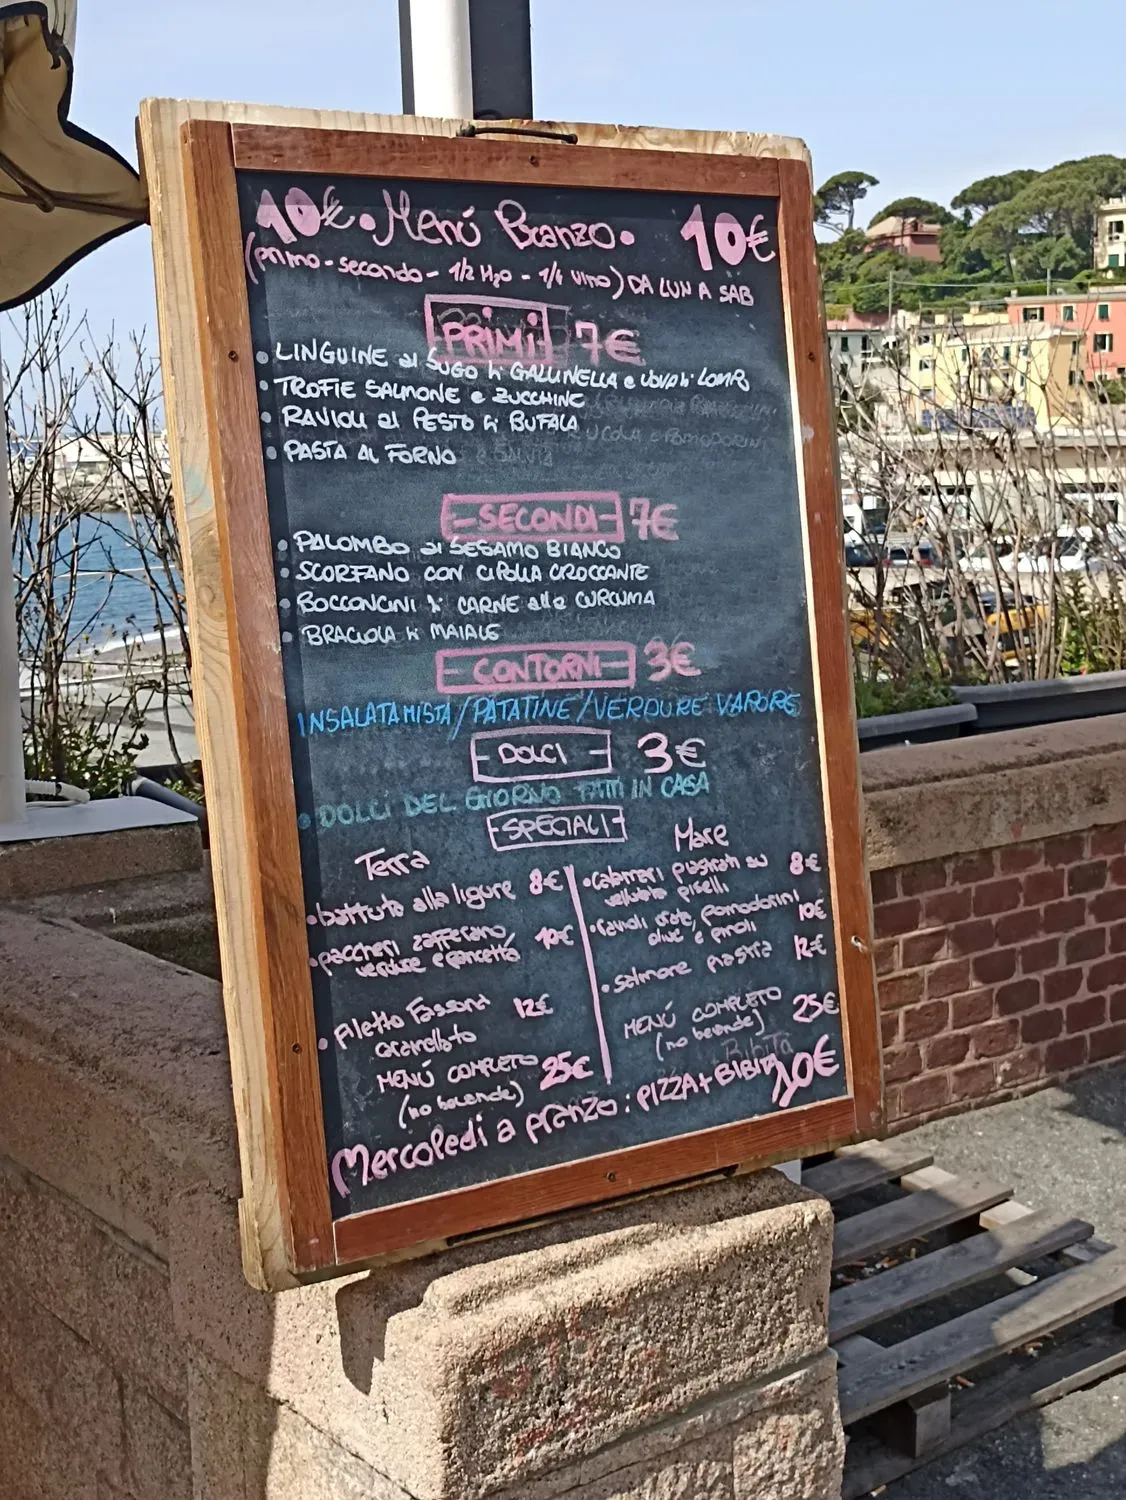 10€ • Menú Pranzo • 10€
(primo - secondo - 1/2 H2O - 1/4 vino) DA LUN A SAB
PRIMI 7€
• LINGUINE al SUGO di GALLINELLA e UOVA di LOMPO
• TROFIE SALMONE e ZUCCHINE
• RAVIOLI al PESTO di BUFALA
• PASTA AL FORNO
- SECONDI - 7€
• PALOMBO al SESAMO BIANCO
• SCORFANO CON CIPOLLA CROCCANTE
• BOCCONCINI di CARNE alla CURCUMA
• BRACIOLA di MAIALE
- CONTORNI - 3€
INSALATA MISTA / PATATINE / VERDURE VAPORE
- DOLCI - 3€
• DOLCI DEL GIORNO FATTI IN CASA
- SPECIALI -
Terra
• battuto alla ligure 8€
• paccheri zafferano, 10€
verdure e pancetta
• filetto Fassona 12€
Granellato
MENÚ COMPLETO 25€
(no bevande)
Mare
• calamari piastrati su 8€
vellutata piselli
• ravioli orate, pomodorini 10€
olive e pinoli
• salmone piastra 12€
MENÚ COMPLETO 25€
(no bevande)
Mercoledi a pranzo: PIZZA + BIBITA 10€